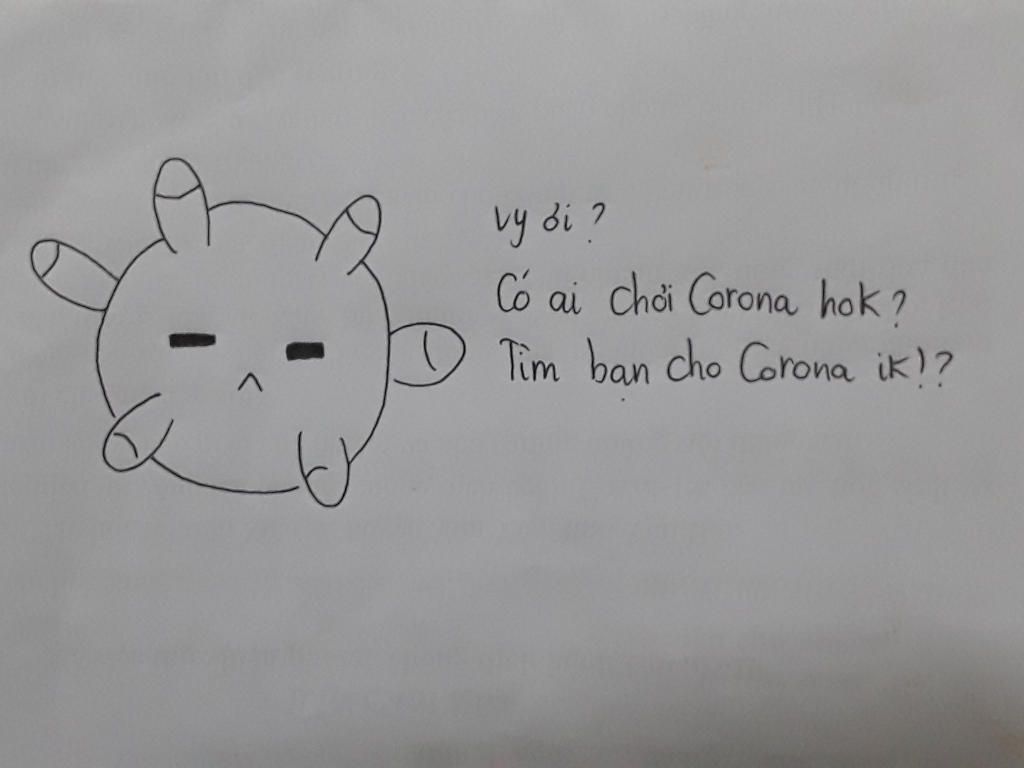 vy ơi ?
Có ai chơi Corona hok ?
Tìm bạn cho Corona ik!?